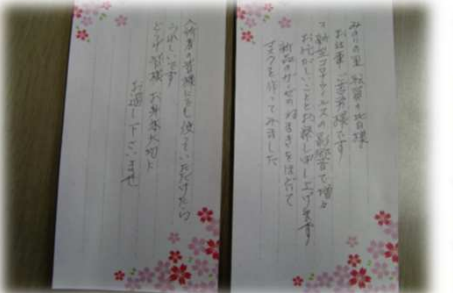 みのりの里 職員の皆様
お仕事 ご苦労様です
新型コロナウィルスの影響で増々
お忙しいことと拝察し申し上げます
新品のガーゼのねまきをほどいて
マスクを作ってみました
入所者の皆様にでも使っていただけたら
うれしいです
どうぞ皆様 お身体大切に
お過し下さいませ